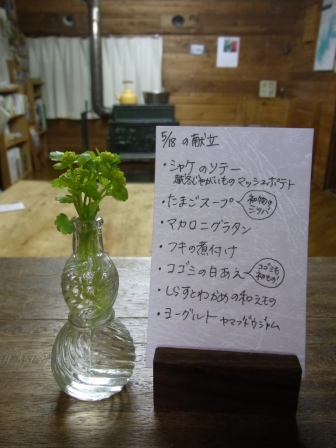 5/18 の献立
・シャケのソテー
蔵分じゃがいものマッシュポテト
・たまごスープ
初物!!ミツバ
・マカロニグラタン
・フキの煮付け
・コゴミの白あえ
コゴミも初もの!
・しらすとわかめの和えもの
・ヨーグルト ヤマブドウジャム